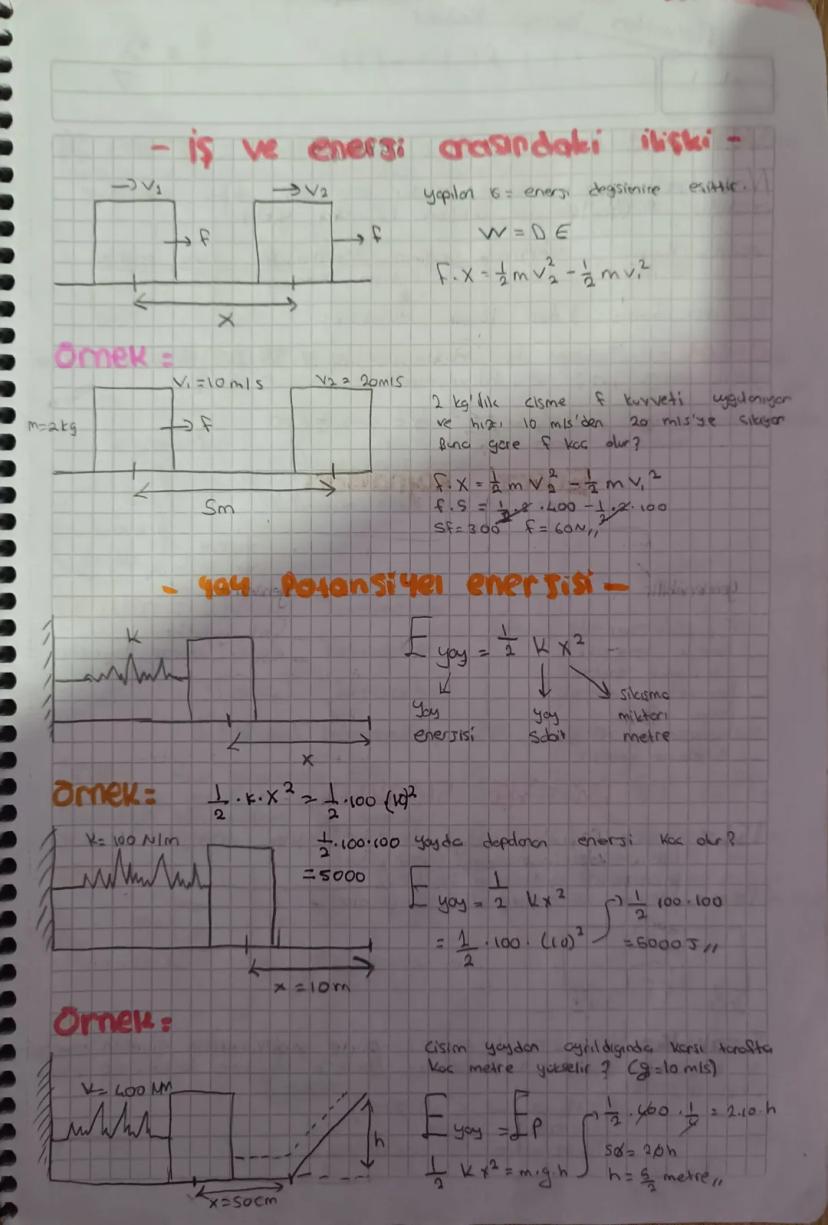 - iş ve enerji arasındaki ilişki -
→V1
→V2
yapılan iş = enerji değişimine eşittir.
F
F
W = D E
F.X = 1/2 m V2² - 1/2 m V1²
X
Örnek =
V1 = 10 m/s
V2 = 20 m/s
m=2kg
F
2 kg'lık cisme F kuvveti uygulanıyor
ve hızı 10 m/s'den 20 m/s'ye çıkıyor
Buna göre F kaç olur?
5m
F.X = 1/2 m V2² - 1/2 m V1²
F.5 = 1/2.2.400 - 1/2.2.100
5F=300 F=60N,,
- yay Potansiyel enerjisi -
K
E yay = 1/2 K X²
yay enerjisi
yay sabit
sıkışma miktarı metre
X
Örnek:
1/2 . K . X² = 1/2 . 100 (10)²
K= 100 N/m
1/2 . 100 . 100
= 5000
yayda depolanan enerji kaç olur?
E yay = 1/2 KX²
= 1/2 . 100 . (10)²
1/2 100.100
=5000 J,,
x = 10m
Örnek:
Cisim yaydan ayrıldığında karşı tarafta
kaç metre yükselir? (g=10 m/s)
K= 400 N/M
h
x=50cm
E yay = EP
1/2 K X² = m.g.h
1/2 . 400 . 1/4 = 2.10.h
50 = 20h
h = 5/2 metre,,